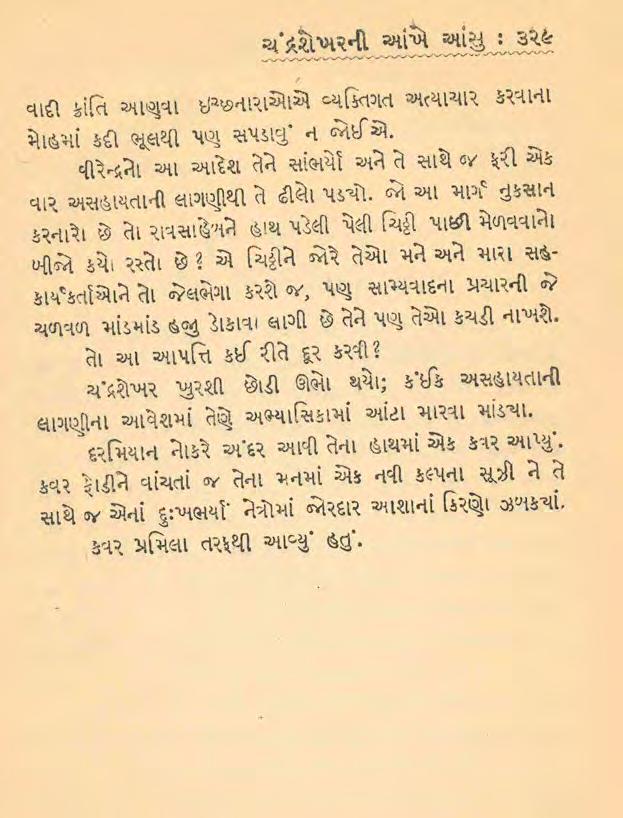 ચંદ્રશેખરની આંખે આંસુ : ૩૨૯
વાદી ક્રાંતિ આણવા ઇચ્છનારાઓએ વ્યક્તિગત અત્યાચાર કરવાના
મોહમાં કદી ભૂલથી પણ સપડાવું ન જોઈએ.
વીરેન્દ્રનો આ આદેશ તેને સાંભર્યો અને તે સાથે જ ફરી એક
વાર અસહાયતાની લાગણીથી તે ઢીલો પડ્યો. જો આ માર્ગ નુકસાન
કરનારો છે તો રાવસાહેબને હાથ પડેલી પેલી ચિટ્ઠી પાછી મેળવવાનો
બીજો કયો રસ્તો છે? એ ચિટ્ઠીને જોરે તેઓ મને અને મારા સહ-
કાર્યકર્તાઓને તો જેલભેગા કરશે જ, પણ સામ્યવાદના પ્રચારની જે
ચળવળ માંડમાંડ હજી ડોકાવા લાગી છે તેને પણ તેઓ કચડી નાખશે.
તો આ આપત્તિ કઈ રીતે દૂર કરવી?
ચંદ્રશેખર ખુરશી છોડી ઊભો થયો; કંઈક અસહાયતાની
લાગણીના આવેશમાં તેણે અભ્યાસિકામાં આંટા મારવા માંડ્યા.
દરમિયાન નોકરે અંદર આવી તેના હાથમાં એક કવર આપ્યું.
કવર ફોડીને વાંચતાં જ તેના મનમાં એક નવી કલ્પના સૂઝી ને તે
સાથે જ એનાં દુઃખભર્યાં નેત્રોમાં જોરદાર આશાનાં કિરણો ઝળક્યાં.
કવર પ્રમિલા તરફથી આવ્યું હતું.